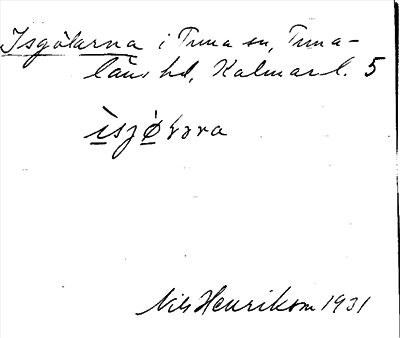 Isgölarna i Tuna sn, Tuna-
läns hd, Kalmar l. 5
ìsjø̀lara
Nils Henrikson 1931